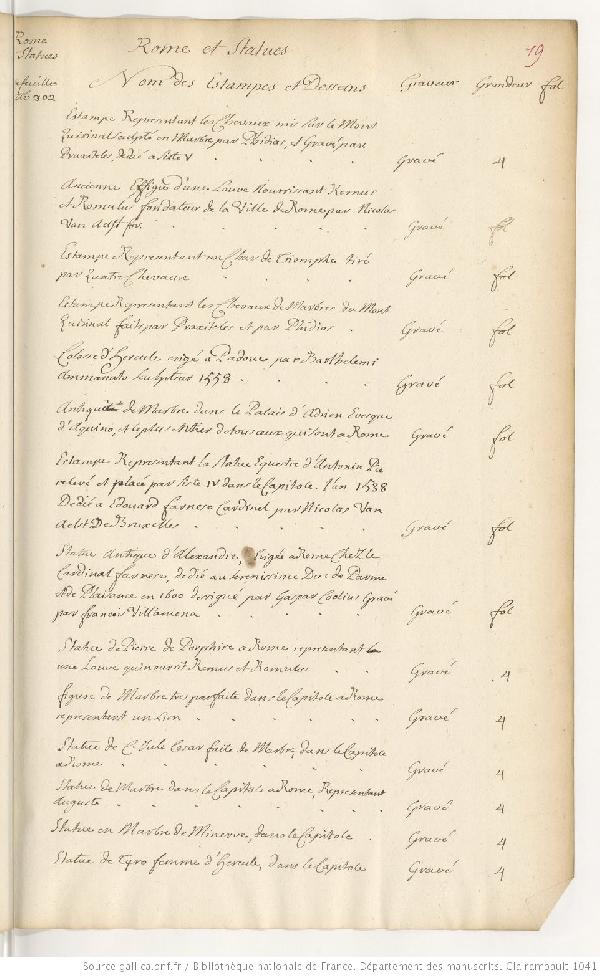 Rome
Statues
19
Rome et Statues
feuille
302
Nom des Estampes et Desseins Graveur Grandeur fol
Estampe Representant les Chevaux mis sur le Mont
Quirinal sculpté en Marbre par Phidias, et Gravé par
Praxiteles, dedié a Sixte V Gravé 4
Ancienne Effigie d'une Louve Nourrissant Remus
et Romulus fondateur de la Ville de Rome par Nicolas
Van Aelst for. Gravé fol
Estampe Representant un Char de Triomphe tiré
par Quatre Chevaux Gravé fol
Estampe Representant les Chevaux de Marbre du Mont
Quirinal faits par Praxiteles et par Phidias Gravé fol
Colosse d'Hercule erigé a Padoue par Barthelemi
Ammanato Sculpteur 1553 Gravé fol
Antiquité de Marbre dans le Palais d'Adrien Evesque
d'Aquino, et le plus entier de tous ceux qui sont a Rome Gravé fol
Estampe Representant la Statue Equestre d'Antonin Pie
relevé et placé par Sixte IV dans le Capitole l'an 1588
Dedié a Edouard farnese Cardinal par Nicolas Van
Aelst De Bruxelles Gravé fol
Statue Antique d'Alexandre, erigée a Rome Chez le
Cardinal farnese, dedié au serenissime Duc de Parme
et de Plaisance en 1600 designé par Gaspar Coelius Gravé
par francois Villamena Gravé fol
Statue de Pierre de Porphire a Rome representant la
une Louve qui nourrit Remus et Romulus Gravé 4
figure de Marbre tres parfaite dans le Capitole a Rome
representant un Lion Gravé 4
Statue de C. Jule Cesar faite de Marbre, dans le Capitole
a Rome Gravé 4
Statue de Marbre dans le Capitole a Rome, Representant
Auguste Gravé 4
Statue en Marbre de Minerve, dans le Capitole Gravé 4
Statue de Tyro femme d'Hercule, dans le Capitole Gravé 4
Source gallica.bnf.fr / Bibliothèque nationale de France. Département des manuscrits. Clairambault 1041